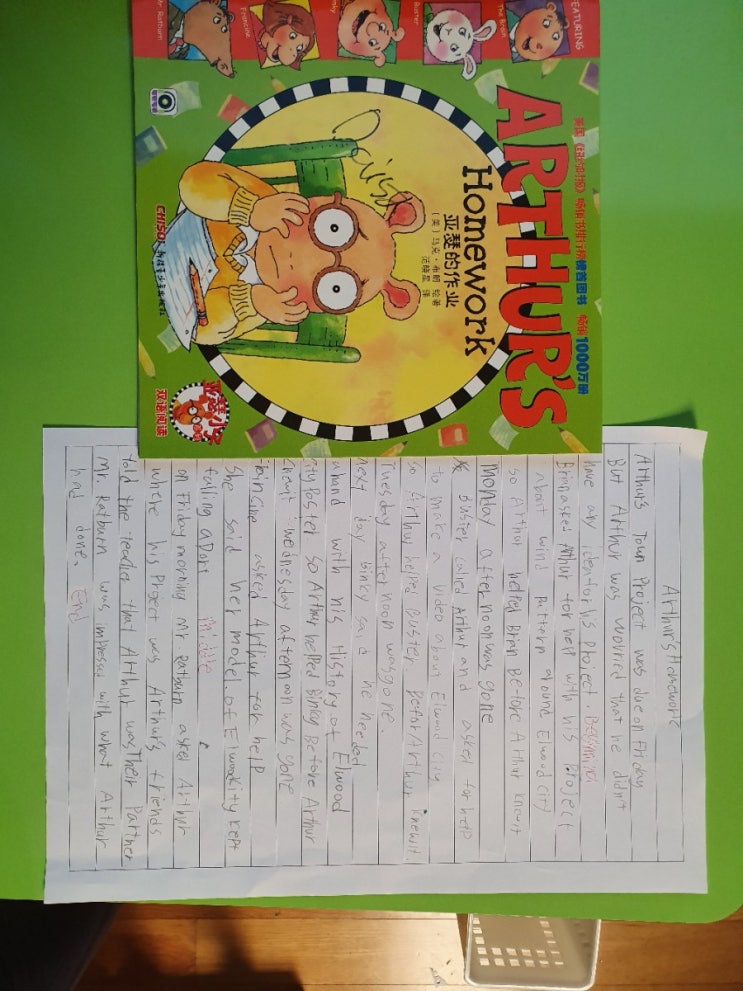 FEATURING
The Brain
Buster
Francine
Mr. Ratburn
美国《纽约时报》畅销书排行榜榜首图书 畅销1000万册
ARTHUR'S
Homework
亚瑟的作业
〔美〕马克·布朗 绘著
范晓星 译
CHISO
亚瑟小子
双语阅读
Arthur's Homework
Arthur's Town Project was due on Friday
But Arthur was worried that he didn't
have any idea for his project. Beginning
Brian asked Arthur for help with his project
about wind pattern around Elwood City
so Arthur helped Brian Before Arthur knew it
Monday afternoon was gone
Buster called Arthur and asked for help
to make a video about Elwood City
so Arthur helped Buster. Before Arthur knew it
Tuesday afternoon was gone.
next day Binky said he needed
a hand with his History of Elwood
City Poster so Arthur helped Binky Before Arthur
knew it wednesday afternoon was gone
Francine asked Arthur for help
She said her model of Elwood City kept
falling apart Middle
on Friday morning Mr. Ratburn asked Arthur
where his project was Arthur's friends
told the teacher that Arthur was Their Partner
Mr. Ratburn was impressed with what Arthur
had done. End